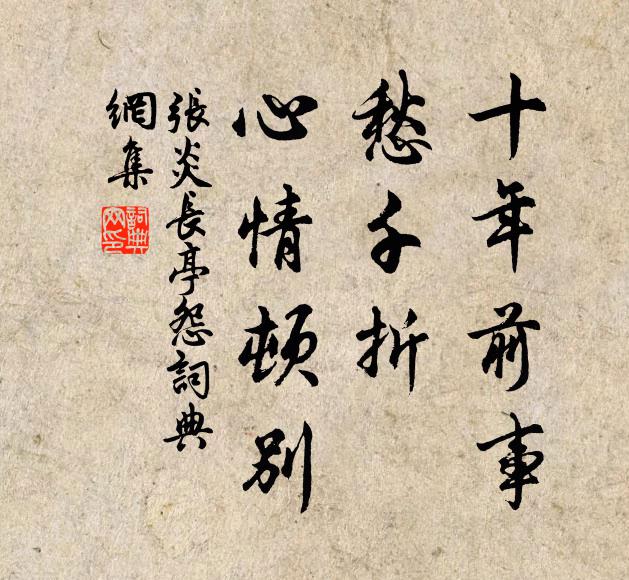 十年前事
愁千折
心情頓別
張炎長亭怨詞典
網集
詞典
网印